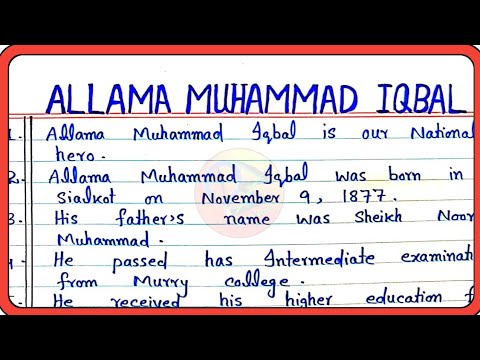 ALLAMA MUHAMMAD IQBAL
1. Allama Muhammad Iqbal is our National
hero.
2. Allama Muhammad Iqbal was born in
Sialkot on November 9, 1877.
3. His father's name was Sheikh Noor
Muhammad.
4. He passed has Intermediate examinat
from Murry college.
5. He received his higher education f